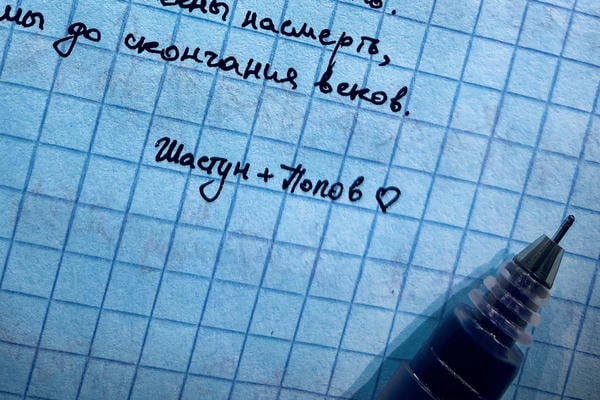 ены насмерть,
мы до скончания веков.
Шастун + Попов ♡